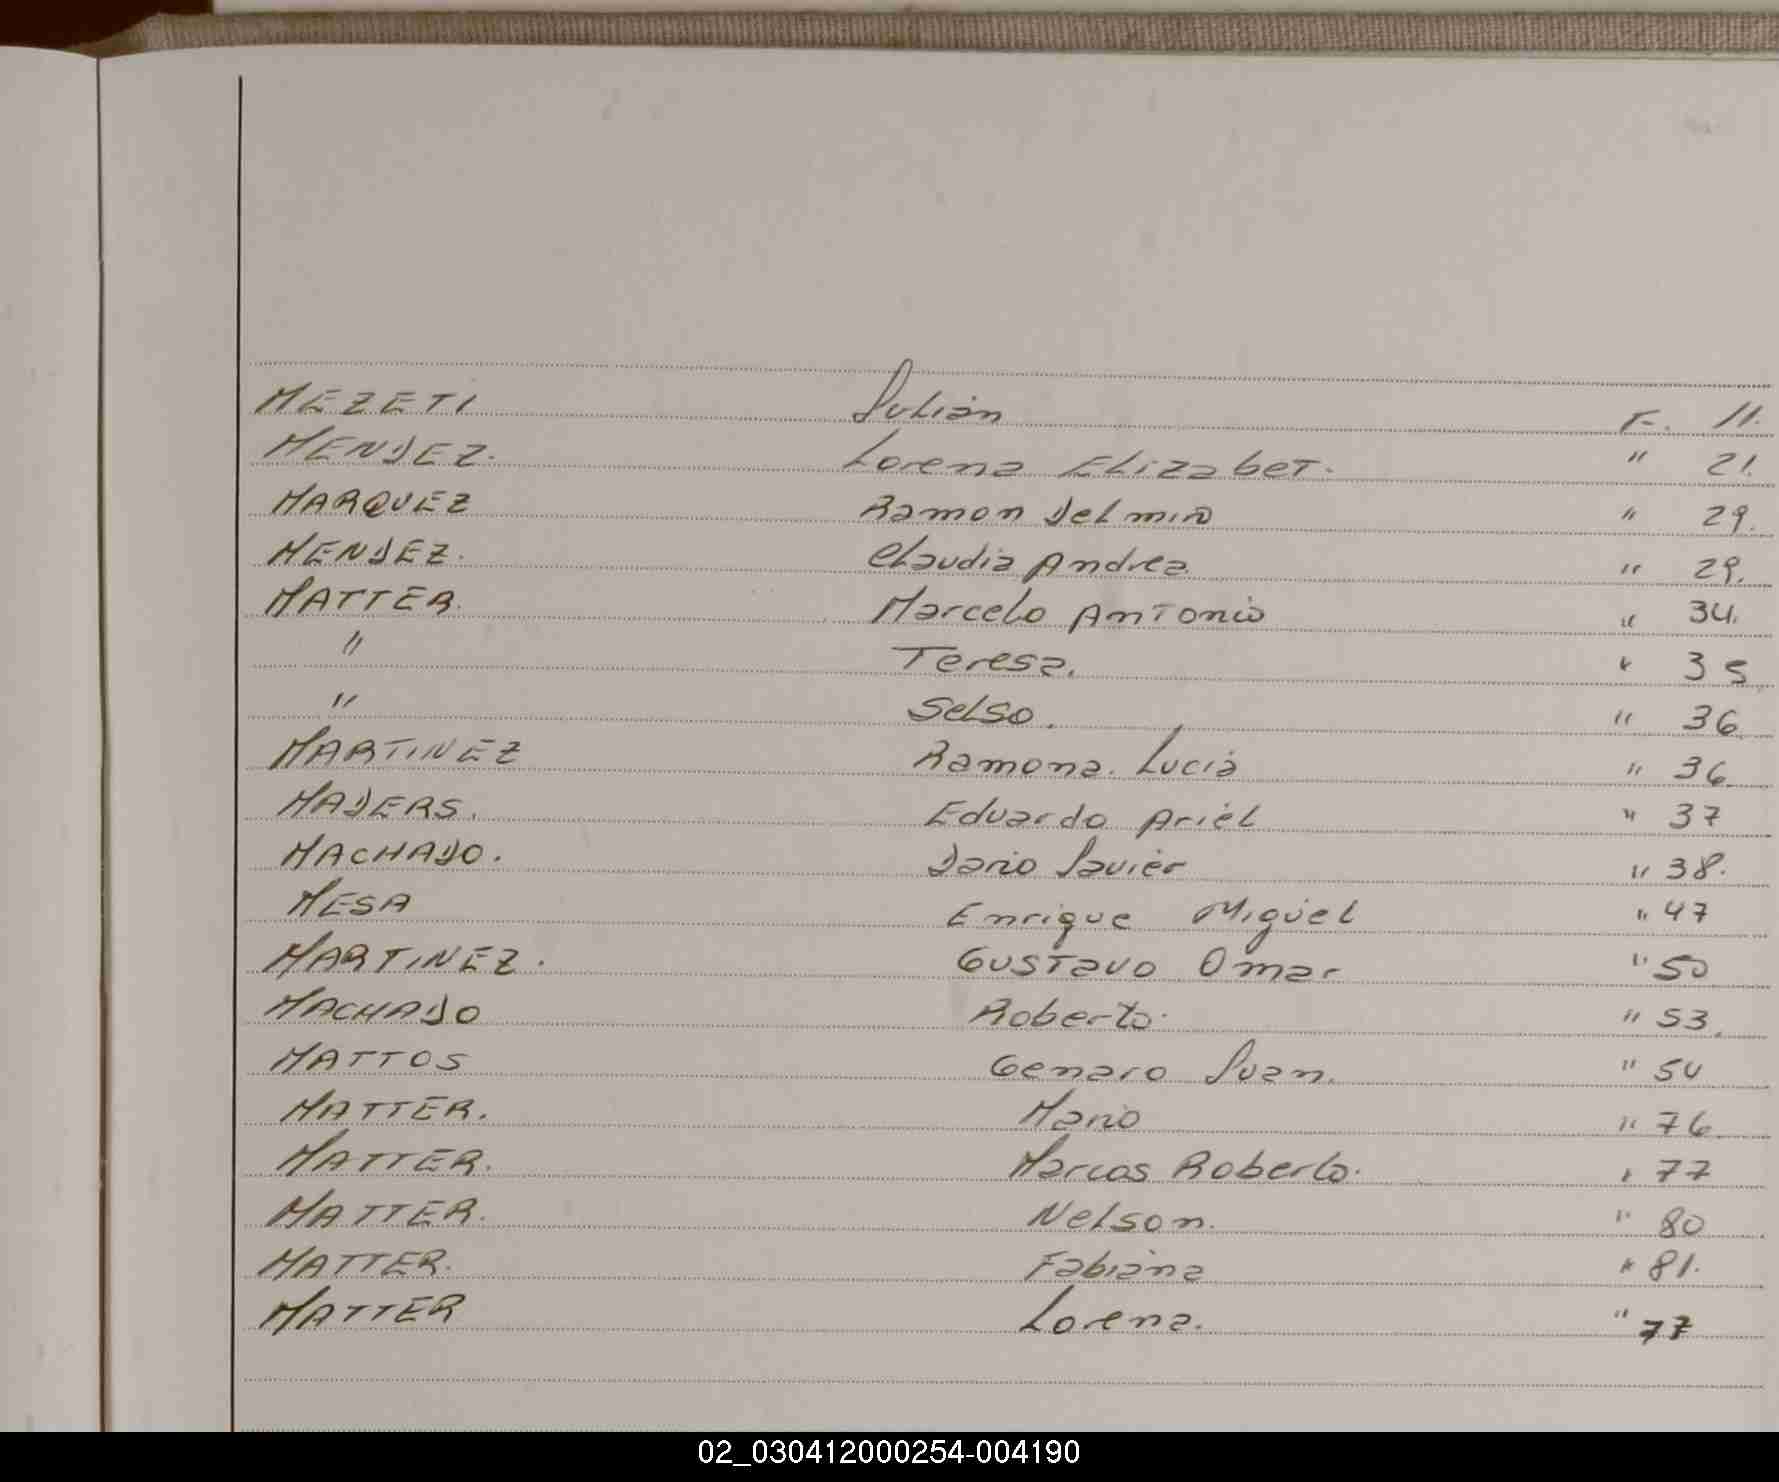 MEZETI Julián F. 11.
MENDEZ. Lorena Elizabet. " 21.
MARQUEZ Ramon Delmiro " 29.
MENDEZ. Claudia Andrea. " 29.
MATTER. Marcelo Antonio " 34.
" Teresa. " 35
" Selso. " 36
MARTINEZ Ramona. Lucia " 36
MADERS. Eduardo Ariel " 37
MACHADO. Dario Javier " 38.
MESA Enrique Miguel " 47
MARTINEZ. Gustavo Omar " 50
MACHADO Roberto. " 53.
MATTOS Genaro Juan. " 54
MATTER. Mario " 76
MATTER. Marcos Roberto. " 77
MATTER. Nelson. " 80
MATTER. Fabiana " 81.
MATTER Lorena. " 77
02_030412000254-004190